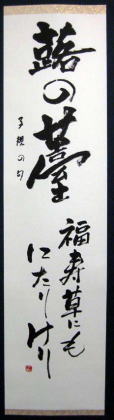 蕗の薹
子規の句
福寿草にも
にたりけり